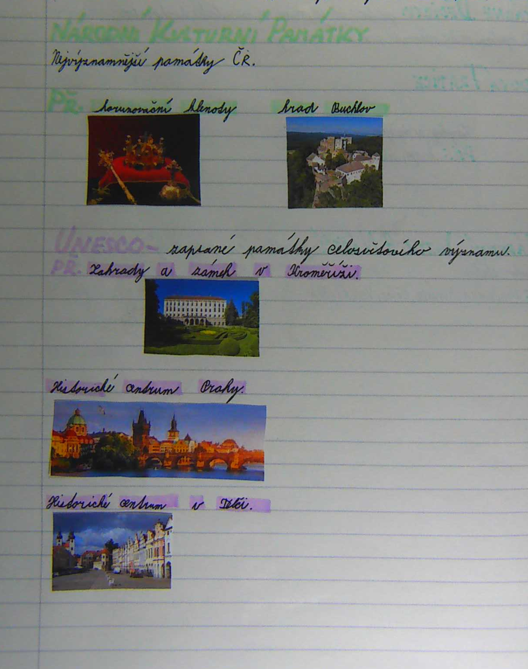 NÁRODNÍ KULTURNÍ PAMÁTKY
Nejvýznamnější památky ČR.
PŘ. korunovační klenoty hrad Buchlov
UNESCO- zapsané památky celosvětového významu.
PŘ. Zahrady a zámek v Kroměříži.
Historické centrum Prahy.
Historické centrum v Telči.